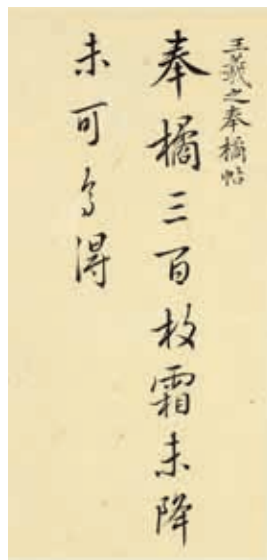 王羲之奉橘帖
奉橘三百枚霜未降
未可多得